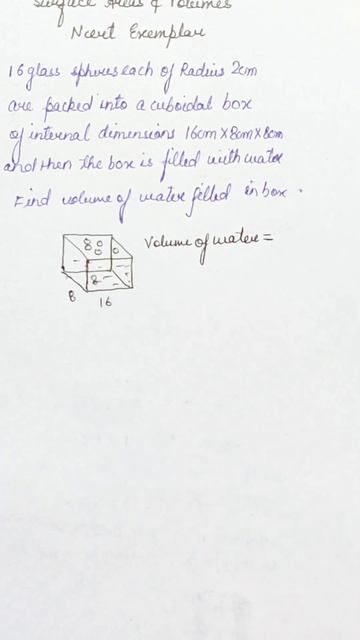 Surface Areas & Volumes
Ncert Exemplar
16 glass spheres each of Radius 2cm
are packed into a cuboidal box
of internal dimensions 16cm X 8cm X 8cm
and then the box is filled with water
Find volume of water filled in box.
Volume of water =
8
8 16